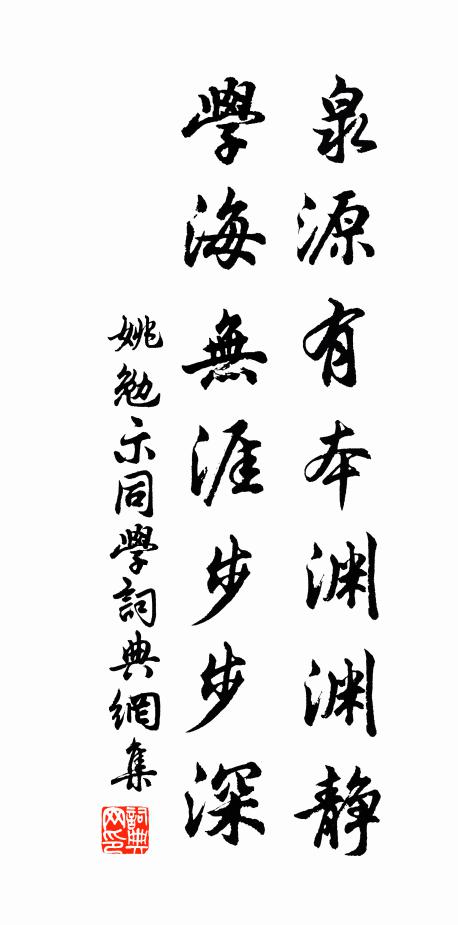 泉源有本渊渊静
學海無涯步步深
姚勉示同學詞典網集
詞典網印